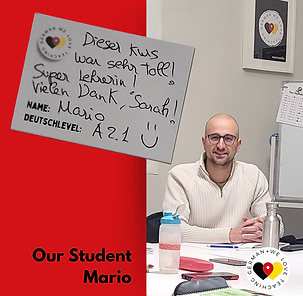 Dieser Kurs
war sehr toll!
Super Lehrerin!
Vielen Dank, Sarah!
NAME: Mario
DEUTSCHLEVEL: A2.1
Our Student
Mario
GERMAN • WE LOVE TEACHING